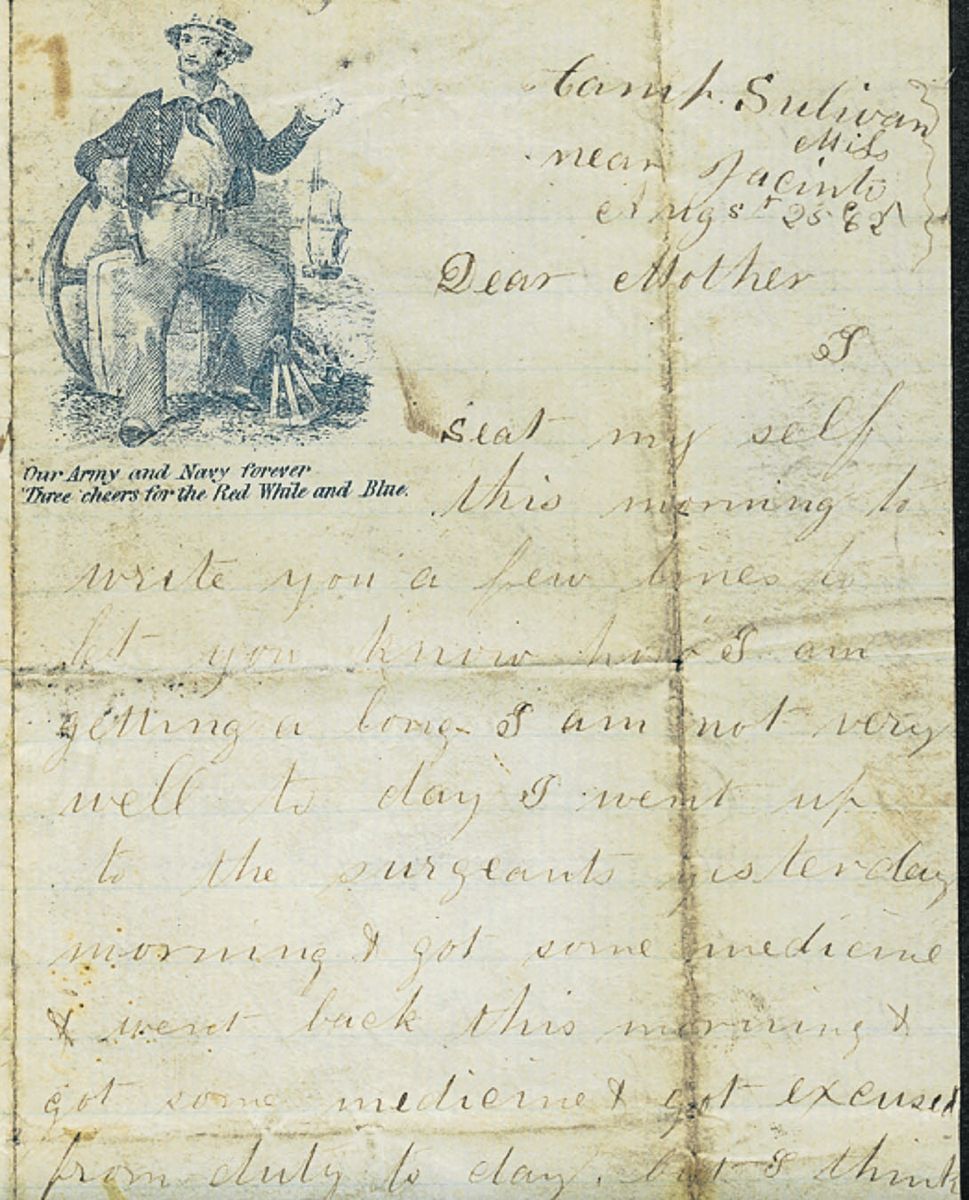 Camp Sulivan
Miss
near Jacinto
Augst 25 62
Dear Mother
I
seat my self
this morning to
write you a few lines to
let you know how I am
getting a long. I am not very
well to day I went up
to the surgeants yisterday
morning & got some medicine
& went back this morning &
got some medicine & got excused
from duty to day. but I think
Our Army and Navy forever
Three cheers for the Red White and Blue.